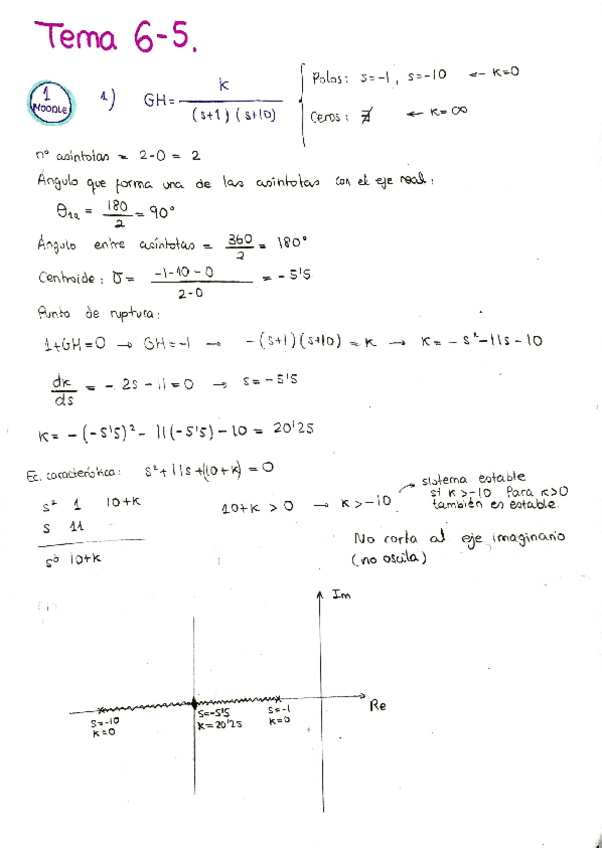 Tema 6-5.
1 MOODLE
1) GH = K / (s+1)(s+10)
Polos: s=-1, s=-10 ← K=0
Ceros: ∄ ← K=∞
nº asíntotas = 2-0 = 2
Ángulo que forma una de las asíntotas con el eje real:
θ1a = 180/2 = 90°
Ángulo entre asíntotas = 360/2 = 180°
Centroide: σ = -1-10-0 / 2-0 = -5'5
Punto de ruptura:
1+GH=0 → GH=-1 → -(s+1)(s+10) = K → K = -s²-11s-10
dK/ds = -2s-11=0 → s=-5'5
K = -(-5'5)² - 11(-5'5) - 10 = 20'25
Ec. característica: s²+11s+(10+K) = 0
s² 1 10+K
s 11
s⁰ 10+K
10+K > 0 → K>-10
sistema estable
si K>-10 Para K>0
también es estable.
No corta al eje imaginario
(no oscila)
Im
Re
s=-10
K=0
s=-5'5
K=20'25
s=-1
K=0